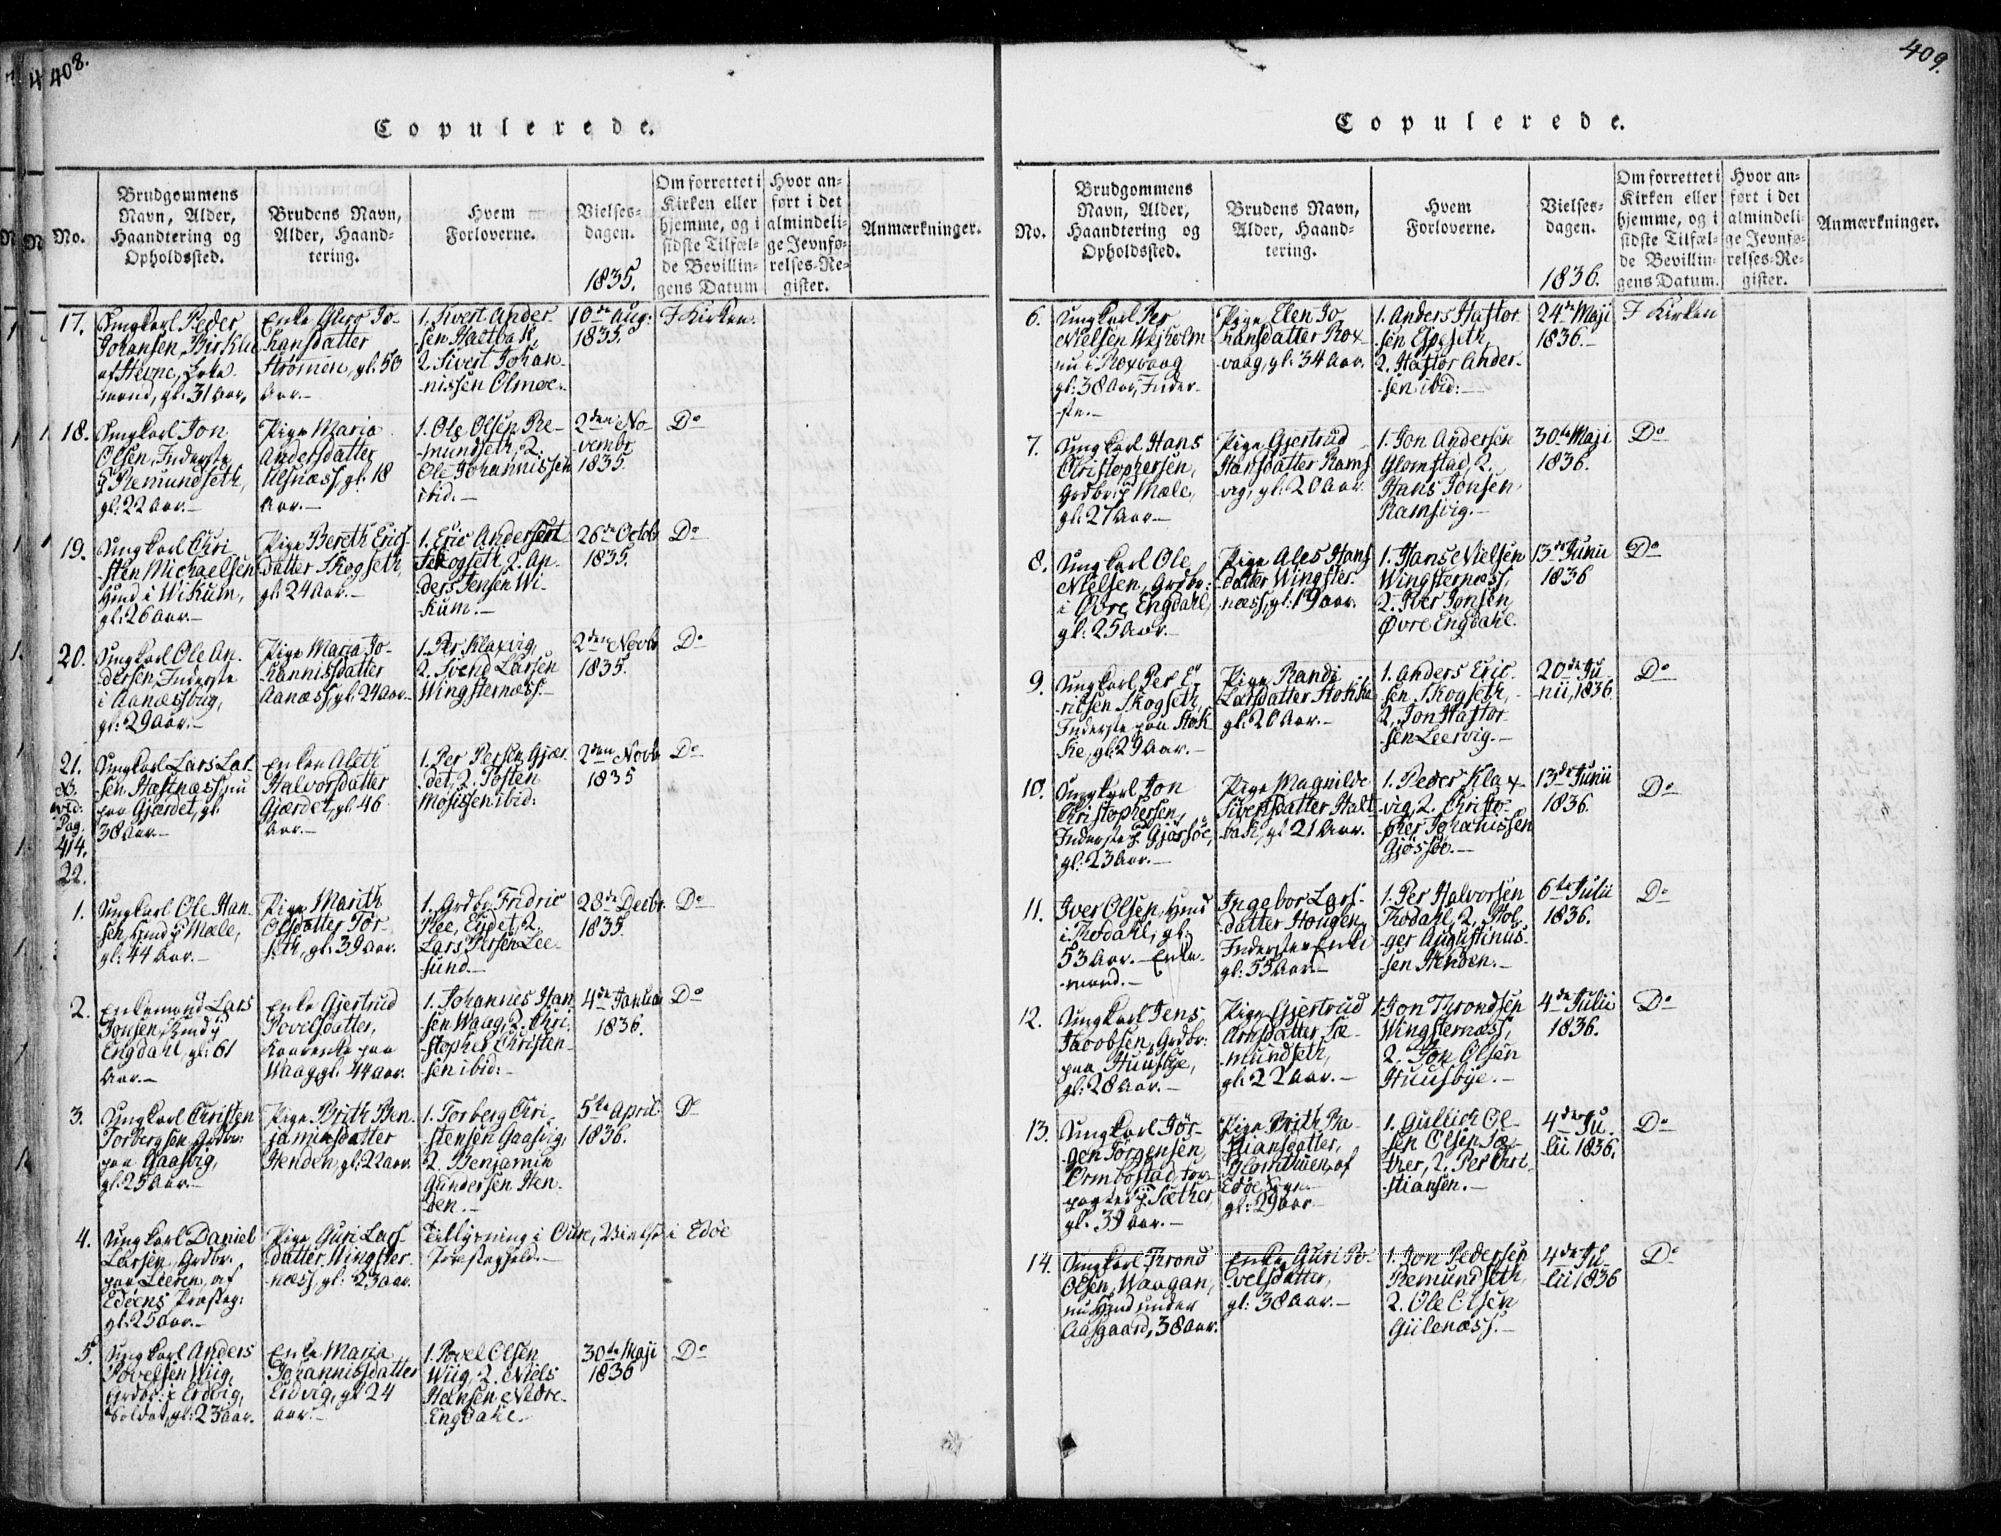 408.
Copulerede.
No.
Brudgommens
Navn, Alder,
Haandtering og
Opholdssted.
Brudens Navn,
Alder, Haand-
tering.
Hvem
Forloverne.
Vielses-
dagen.
1835.
Om forrettet i
Kirken eller
hjemme, og i
sidste Tilfæl-
de Bevillin-
gens Datum
Hvor an-
ført i det
almindeli-
ge Jevnfø-
relses-Re-
gister.
Anmærkninger.
17.
Ungkarl Peder
Johansen Birklie
af Hevne, Enke-
mand, gl: 31 Aar,
Enke Guro Jo-
hansdatter
Strømen, gl: 53
Aar.-
1. Sivert Ander-
sen Haltbak,
2. Sivert Johan-
nissen Olmøe.-
10de Aug:
1835.
I Kirken.
18.
Ungkarl Jon
Olsen, Inderste
i Remundseth,
gl: 22 Aar.-
Pige Maria
Andersdatter
Ulsnæss, gl: 18
Aar.-
1. Ole Olsen Re-
mundseth, 2.
Ole Johannissen
ibid.-
2den No-
vembr
1835.
Do
19.
Ungkarl Chri-
sten Michaelsen
Huusmd i Wikum,
gl: 26 Aar.-
Pige Bereth Erics-
datter Skogseth,
gl: 24 Aar.-
1. Eric Andersen
Skogseth, 2. An-
ders Jensen Wi-
kum.-
26de Octob
1835.
Do
20.
Ungkarl Ole An-
dersen, Inderste
i Aanæssbug,
gl: 29 Aar.-
Pige Maria Jo-
hannisdatter
Aanæss, gl: 24 Aar.-
1. Per Klaxvig,
2. Svend Larsen
Wingsternæss.-
2den Novb
1835.
Do
21.
NB.
vid:
Pag.
414.
Ungkarl Lars Lar-
sen Hæstnæss, nu
paa Gjærdet, gl.
38 Aar.-
Enken Aleth
Halvorsdatter
Gjærdet, gl: 46
Aar.-
1. Per Persen Gjær-
det, 2. Tosten
Mosissen ibid:
2den Novb
1835
Do
22.
1.
Ungkarl Ole Han-
sen, Huusmd i Mæle,
gl: 44 Aar.-
Pige Marith
Olsdatter Tor-
seth, gl: 39 Aar.
1. Grdbr. Fridric
Ree, Eidet, 2.
Lars Persen Lee-
sund.-
28de Decbr.
1835.
Do
2.
Enkemand Lars
Jonsen, Huusmd i
Engdahl, gl: 61
Aar.-
Enke Gjertrud
Povelsdatter,
Kaarenke paa
Waag, gl: 44 Aar.
1. Johannes Han-
sen Waag, 2. Chri-
stopher Christen-
sen ibid:-
4de Januar
1836.
Do
3.
Ungkarl Christen
Torbergsen, Grdbr:
paa Gaasvig,
gl: 25 Aar.-
Pige Brith Ben-
jaminsdatter
Henden, gl: 22 Aar.
1. Torberg Chri-
stensen Gaasvig,
2. Benjamin
Gundersen Hen-
den.-
5te April
1836.
Do
4.
Ungkarl Daniel
Larsen, Grdbr.
paa Leeren, af
Edøens Præsteg:
gl: 25 Aar.-
Pige Guri Lars-
datter Wingster-
næss, gl: 23 Aar.
Tillysning i Oure, Vielse i Edøe
Præstegjeld.-
5.
Ungkarl Anders
Povelsen Wiig,
Grdbr: i Eidvig,
Soldat, gl: 23 Aar.
Enke Maria
Johannisdatter
Eidvig, gl 24
Aar.-
1. Povel Olsen
Wiig, 2. Niels
Hansen Nedre-
Engdahl.-
30te Maji
1836
Do
409.
Copulerede.
No.
Brudgommens
Navn, Alder,
Haandtering og
Opholdssted.
Brudens Navn,
Alder, Haand-
tering.
Hvem
Forloverne.
Vielses-
dagen.
1836.
Om forrettet i
Kirken eller
hjemme, og i
sidste Tilfæl-
de Bevillin-
gens Datum.
Hvor an-
ført i det
almindeli-
ge Jevnfø-
relses-Re-
gister.
Anmærkninger.
6.
Ungkarl Per
Nielsen Wejholm
nu i Roxvaag
gl: 38 Aar, Inder-
ste.-
Pige Elen Jo-
hansdatter Rox-
vaag, gl: 34 Aar.
1. Anders Haftor-
sen Espeseth,
2. Haftor Ander-
sen ibid:-
24de Maji
1836.-
I Kirken
7.
Ungkarl Hans
Christophersen,
Grdbr i Mæle,
gl: 27 Aar.-
Pige Gjertrud
Hansdatter Rams-
vig, gl: 20 Aar.
1. Jon Andersen
Glomstad, 2.
Hans Jonsen
Ramsvig.-
30te Maji
1836.
Do
8.
Ungkarl Ole
Nielsen, Grdbr:
i Øvre Engdahl,
gl: 25 Aar.-
Pige Ales Hans-
datter Wingster-
næss, gl: 19 Aar.
1. Hans Nielsen
Wingsternæss,
2. Iver Jonsen
Øvre Engdahl.
13de Junii
1836
Do
9.
Ungkarl Per E-
ricsen Skogseth,
Inderste paa Stok-
ke, gl: 29 Aar.-
Pige Randi
Larsdatter Stokke
gl: 20 Aar.-
1. Anders Eric-
sen Skogseth,
2. Jon Haftor-
sen Leervig.-
20de Ju-
nii, 1836
Do
10.
Ungkarl Jon
Christophersen,
Inderste i Gjøssøe,
gl: 23 Aar.-
Pige Magnilde
Sivertsdatter Halt-
bak, gl 21 Aar.
1. Peder Klax-
vig, 2. Christo-
pher Johanissen
Gjøssøe.-
13de Junii
1836.
Do
11.
Iver Olsen, Huusmd
i Rødahl, gl:
53 Aar.- Enke-
mand.-
Ingebor Lars-
datter Hougen,
Inderste Enke
gl: 55 Aar.-
1. Per Halvorsen
Rødahl, 2. Hol-
ger Augustinus-
sen Henden.-
6te Julii
1836.
Do
12.
Ungkarl Jens
Jacobsen, Grdbr:
paa Huusbye,
gl: 28 Aar.-
Pige Gjertrud
Arnsdatter Sæ-
mundseth,
gl: 22 Aar.-
1. Jon Throndsen
Wingsternæss,
2. Jon Olsen
Huusbye.-
4de Julii
1836.
Do
13.
Ungkarl Jør-
gen Jørgensen,
Ormbostad, for-
pagter i Sæther,
gl: 39 Aar.-
Pige Brith Ba-
stiansdatter,
af
Edøe Sogn
gl: 29 Aar
1. Gullich Ol-
sen Olsen Sæ-
ther, 2. Per Chri-
stiansen.-
4de Ju-
lii 1836.
Do
14.
Ungkarl Thrond
Olsen, Waagan,
nu Huusmd under
Aasgaard, 38 Aar.
Enke Guri Po-
velsdatter,
gl: 38 Aar.-
1. Jon Pedersen
Remundseth,
2. Ole Olsen
Gulenæss.-
4de Ju-
lii 1836
Do